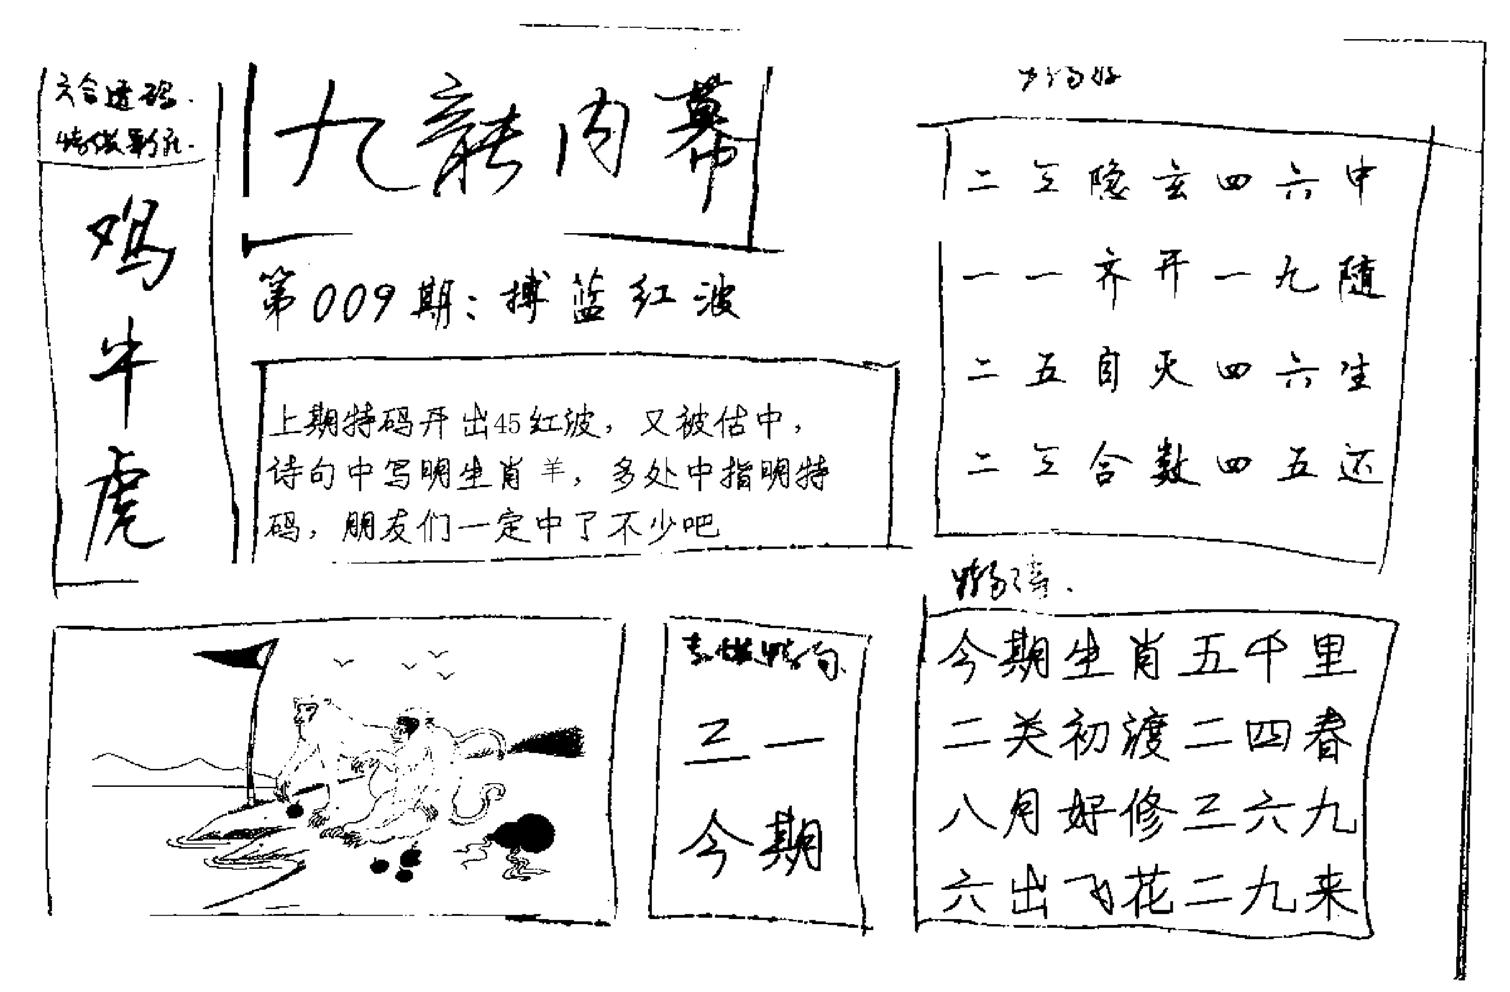 六合透码
九龍内幕
鸡
牛
虎
第009期：搏蓝红波
上期特码开出45红波，又被估中，
诗句中写明生肖羊，多处中指明特
码，朋友们一定中了不少吧
二三隐玄四六中
一一齐开一九随
二五自灭四六生
二三合数四五还
三一
今期
今期生肖五千里
二关初渡二四春
八月好修三六九
六出飞花二九来